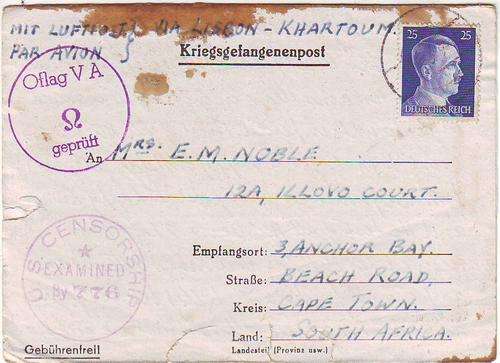 MIT LUFTPOST } VIA LISBON - KHARTOUM
PAR AVION
Kriegsgefangenenpost
25 25
DEUTSCHES REICH
Oflag V A
Ω
geprüft
An MRS. E. M. NOBLE
12A, KLOVO COURT.
Empfangsort: 3, ANCHOR BAY.
Straße: BEACH ROAD,
Kreis: CAPE TOWN.
Land: SOUTH AFRICA.
Landesteil (Provinz usw.)
CENSORSHIP
EXAMINED
776
Gebührenfrei!